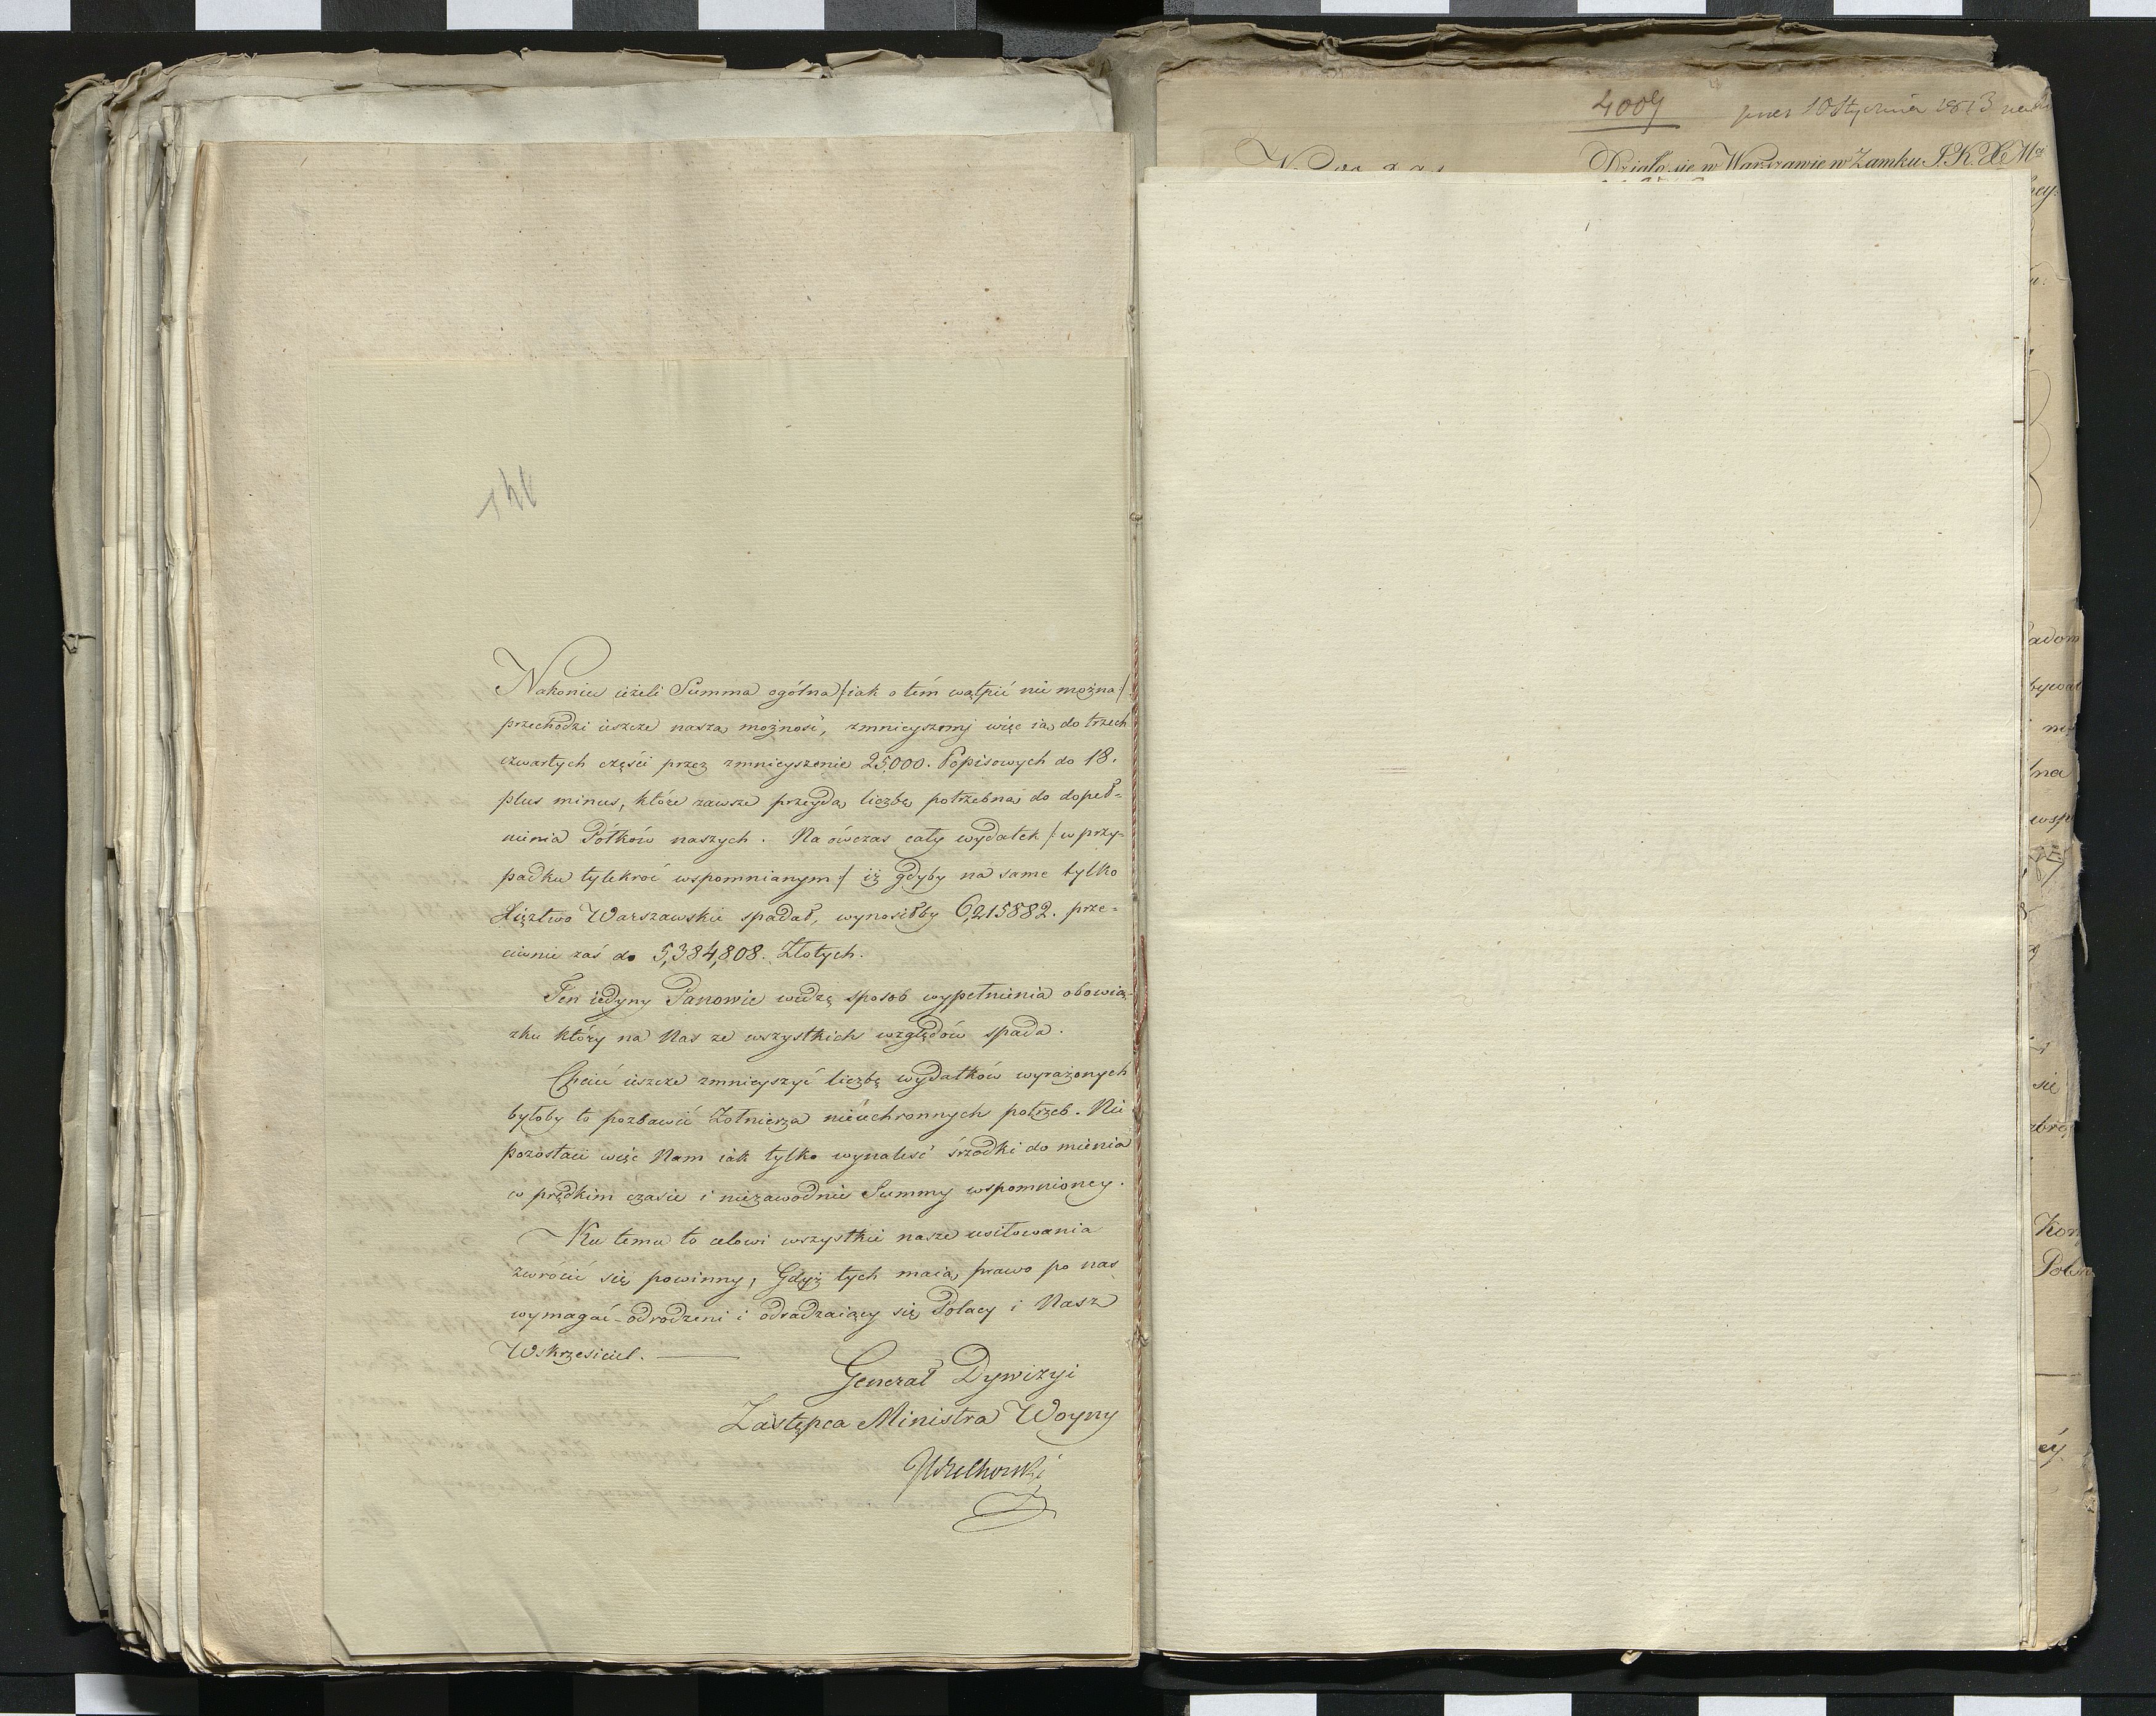 Nakoniec ieżeli Summa ogólna /:iak o tém wątpić nie można:/
przechodzi ieszcze naszą możność, zmnieyszmy więc ią do trzech
czwartych części przez zmnieyszenie 25000. Popisowych do 18.
plus minus, które zawsze przeydą liczbę potrzebną do dopeł-
nienia Półków naszych. Na ówczas cały wydatek /:w przy-
padku tylekroć wspomnianym:/ iż gdyby na same tylko
Xięztwo Warszawskie spadał, wynosiłby 6,215882. prze-
ciwnie zaś do 5,384,808. Złotych.
Ten iedyny Panowie widzę sposob wypełnienia obowią-
zku który na Nas ze wszystkich względów spada.
Chcieć ieszcze zmnieyszyć liczbę wydatków wyrażonych
byłoby to pozbawić Żołnierza nieuchronnych potrzeb. Nie
pozostaie więc Nam iak tylko wynaleść śrzodki do mienia
w prędkim czasie i niezawodnie Summy wspomnioney.
Ku temu to celowi wszystkie nasze usiłowania
zwrócić się powinny, Gdyż tych maią prawo po nas
wymagać odrodzeni i odradzaiący się Polacy i Nasz
Wskrzesiciel.
Generał Dywizyi
Zastępca Ministra Woyny
Wielhorski
4009
10 Stycznia 1813
Działo się w Warszawie w Zamku J.K.X.Mci